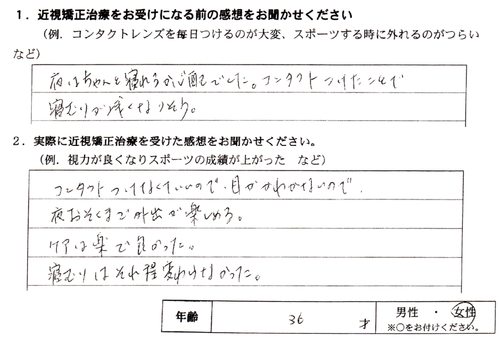 1．近視矯正治療をお受けになる前の感想をお聞かせください
（例．コンタクトレンズを毎日つけるのが大変、スポーツする時に外れるのがつらい
など）
夜はちゃんと寝れるか心配でした。コンタクトつけたことで
寝むりが浅くなりそう。
2．実際に近視矯正治療を受けた感想をお聞かせください。
（例．視力が良くなりスポーツの成績が上がった　など）
コンタクトつけなくていいので、目がかわかないので、
夜おそくまで外出が楽しめる。
ケアは楽で良かった。
寝むりはそれ程変わらなかった。
年齢　36　才　男性　・　女性
※○をお付けください。